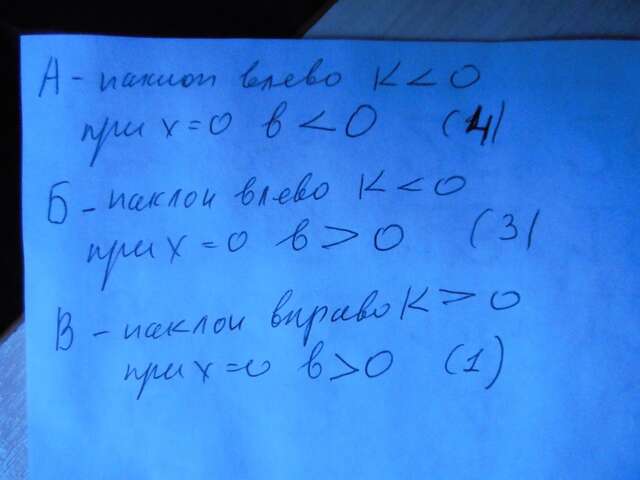 А - наклон влево К < 0
при х = 0 в < 0 (4)
Б - наклон влево К < 0
при х = 0 в > 0 (3)
В - наклон вправо К > 0
при х = 0 в > 0 (1)